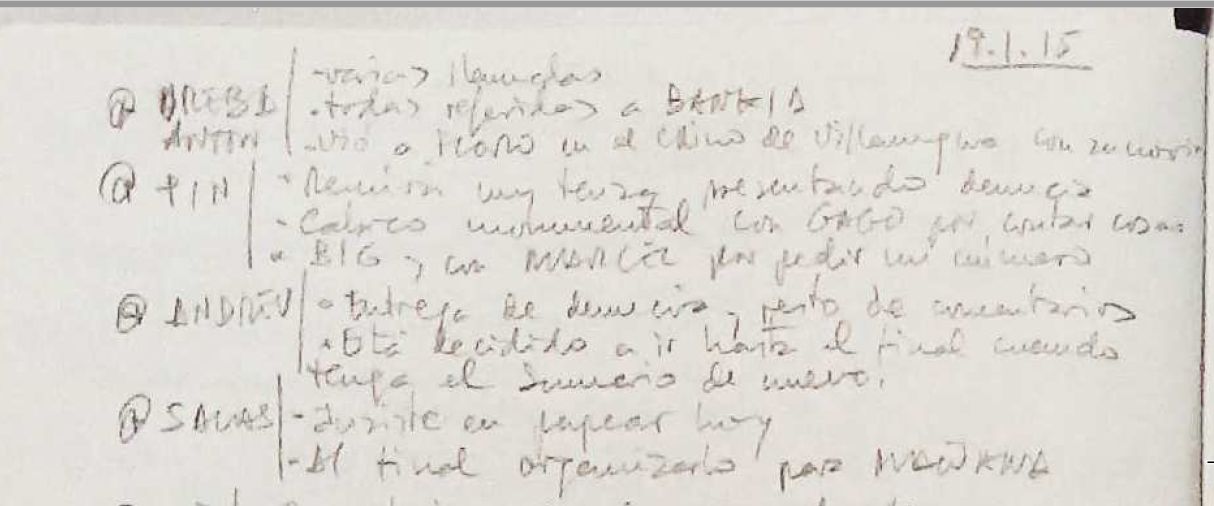 19.1.15
- varias llamadas
. todas referidas a BANKIA
ANTON - vio a en el chino de Villamagna con
PIN · Reunión muy tensa presentando denuncia
- Cabreo monumental con GAGO por contar cosas
BIG y con por pedir mi número
ANDREU · Entrega de denuncia y resto de comentarios
· Está decidido a ir hasta el final cuando
tenga el Sumario de nuevo.
SALAS - Insiste en papear hoy
- Al final organizado para MAÑANA